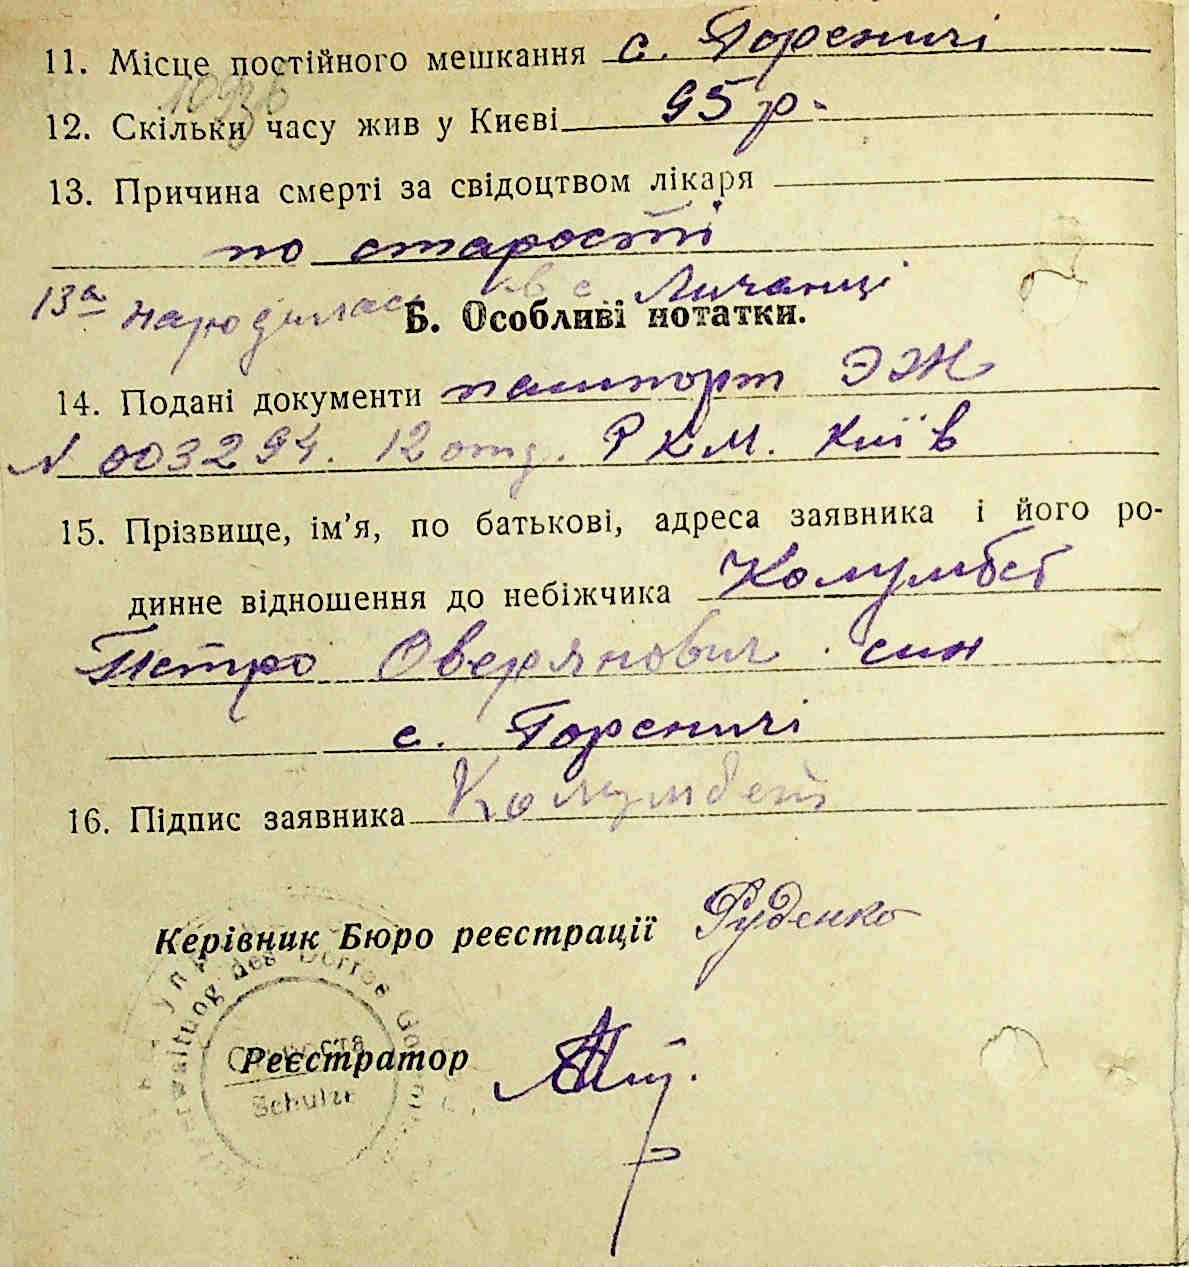 11. Місце постійного мешкання с. Гореничі
12. Скільки часу жив у Києві 95 р.
13. Причина смерті за свідоцтвом лікаря
по старости
13а народилась в с. Личанці
Б. Особливі нотатки.
14. Подані документи пашпорт ЭЖ
N 003294. 12 отд. РКМ. Київ
15. Прізвище, ім’я, по батькові, адреса заявника і його ро-
динне відношення до небіжчика Колумбет
Петро Оверянович син
с. Гореничі
16. Підпис заявника Колумбет
Керівник Бюро реєстрації Руденко
Реєстратор
Староста
Schulze